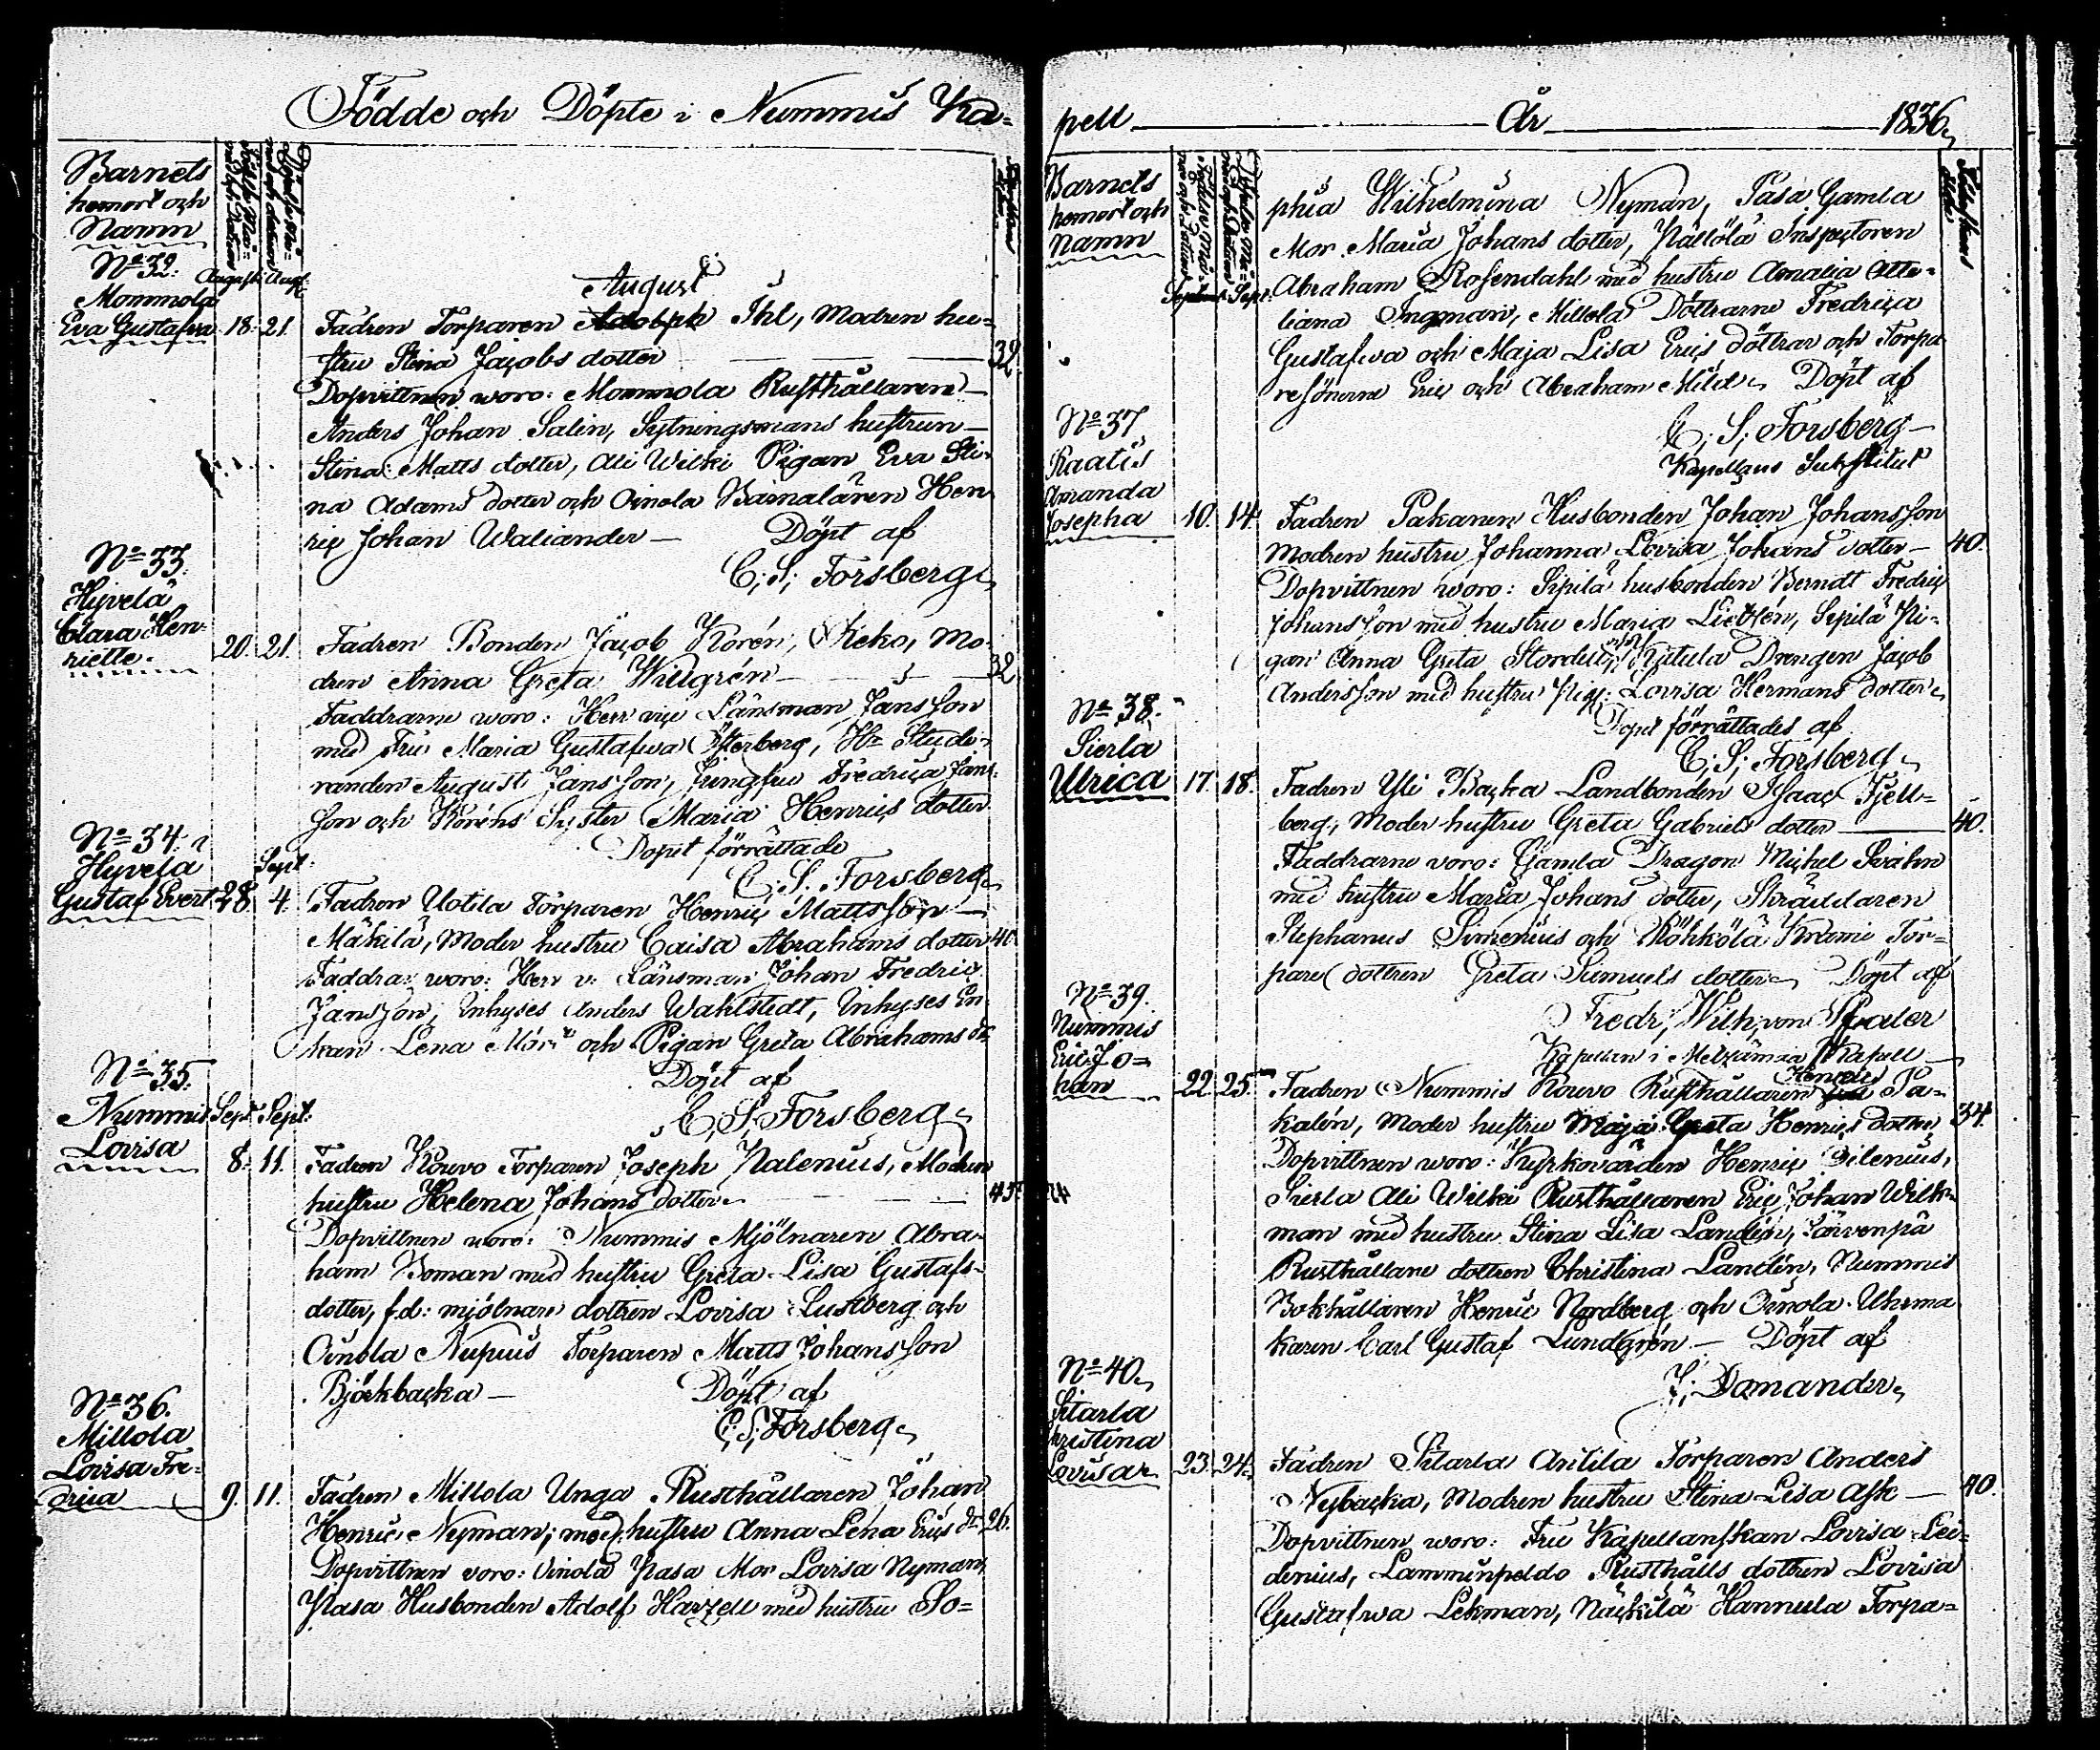 Födde och Döpte i Nummis Ka=
Barnets
hemort och
Namn
No 32.
August: Aug:
Mommola
Eva Gustafva 18. 21.
August
Fadren Torparen Adolph Ihl, Modren hu=
stru Stina Jacobs dotter 32
Dopvittnen woro: Mommola Rusthållaren
Anders Johan Salin, Sytningsmans hustrun
Stina Matts dotter, Ali Wilki Pigan Eva Sti-
na Adams dotter och Oinola Barnaläraren Hen
ric Johan Waliander — Döpt af
C: S: Forsberg
No 33.
Hyvelä
Clara Hen-
riette. 20. 21.
Fadren Bonden Jacob Korén, Keko, Mo-
dren Anna Greta Willgrén 32
Faddrarne woro: Herr vice Länsman Jansson
med Fru Maria Gustafwa Österberg, Hr Stude-
randen August Jansson, Jungfru Fredrica Jans-
son och Koréns Syster Maria Henrics dotter
Dopet förrättade
C: S: Forsberg
No 34.
Hyvelä
Gustaf Evert 28. Sept: 4.
Fadren Uotila Torparen Henric Mattsson
Mäkilä, Moder hustru Caisa Abrahams dotter 40
Faddrar woro: Herr v: Länsman Johan Fredric
Jansson, Inhyses Anders Wahlstedt, Inhyses En
kan Lena Mör och Pigan Greta Abrahams dr
Döpt af
C. S. Forsberg
No 35.
Nummis Sept: Sept:
Lovisa 8. 11.
Fadren Kouvo Torparen Joseph Nalenius, Modren
hustru Helena Johans dotter 43
Dopvittnen woro: Nummis Mjölnaren Abra-
ham Boman med hustru Greta Lisa Gustafs-
dotter, f.d: mjölnare dottren Lovisa Lustberg och
Oinola Nupuis Torparen Matts Johansson
Björkbacka — Döpt af
C; S; Forsberg
No 36.
Millola
Lovisa Fre-
drica 9. 11.
Fadren Millola Unga Rusthållaren Johan
Henric Nyman, med hustru Anna Lena Erics dr 26.
Dopvittnen woro: Oinola Pasa Mor Lovisa Nyman,
Pasa Husbonden Adolf Harzell med hustru So=
pell År 1836
Barnets
hemort och
Namn
Septemb: Sept:
phia Wilhelmina Nyman, Pasa Gamla
Mor Maria Johans dotter, Källölä Inspectoren
Abraham Rosendahl med hustru Amalia Atte-
liana Ingman, Millola Döttrarne Fredrica
Gustafwa och Maja Lisa Erics döttrar och Torpa-
resönerne Eric och Abraham Mild. Döpt af
C; S; Forsberg
Kapellans Substitut
No 37
Raatis
Amanda
Josepha 10. 14.
Fadren Pakanen Husbonden Johan Johansson
Modren hustru Johanna Lovisa Johans dotter 40.
Dopvittnen woro: Sipilä husbonden Berndt Fredric
Johansson med hustru Maria Lietzén, Sipilä Pi-
gan Anna Greta Stordell, och Kutula Drengen Jacob
Andersson med hustru Pig: Lovisa Hermans dotter
Dopet förrättades af
C: S; Forsberg
No 38.
Sierla
Ulrica 17. 18.
Fadren Yli Backa Landbonden Isaac Fjell=
berg, Moder hustru Greta Gabriels dotter 40.
Faddrarne voro: Gamla Dragon Michel Svahn
med hustru Maria Johans dotter, Skräddaren
Stephanus Simenius och Röhkölä Krami Tor=
pare dottren Greta Samuels dotter Döpt af
Fredr; Wilh; von Pfaler
Kapellan i Kapell
No 39.
Nummis
Eric Jo=
han 22 25.
Fadren Nummis Kouvo Rusthållaren Henric Pa-
kalén, Moder hustru Maja Greta Henrics dotter 34
Dopvittnen woro: Kyrkovärden Henric Silenius,
Sierla Ali Wilki Rusthållaren Eric Johan Wilk-
man med hustru Stina Lisa Landén, Järvenpä
Rusthållare dottren Christina Landén, Nummis
Bokhållaren Henric Nordberg och Oinola Uhrma
karen Carl Gustaf Lundgren — Döpt af
J; Domander
No 40
Sitarla
Kristina
Lovisa 23 24.
Fadren Sitarla Antila Torparen Anders
Nybacka, Modren hustru Stina Lisa Ask — 40.
Dopvittnen woro: Fru Kapellanskan Lovisa Lei-
denius, Lamminpeldo Rusthålls dottren Lovisa
Gustafwa Lekman, Näckilä Hannula Torpa=